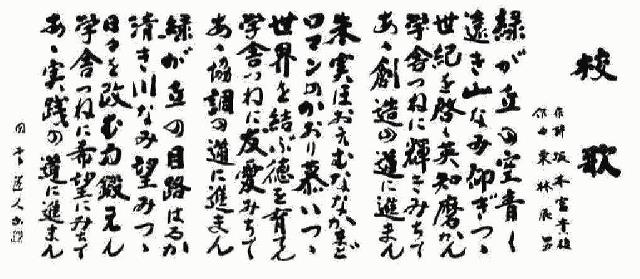 校歌
作詞 坂本富貴雄
作曲 栗林辰男
緑が丘の空青く
遠き山なみ仰ぎつゝ
世紀を啓く英知磨かん
学舎つねに輝きみちて
あゝ創造の道に進まん
朱実ほおえむななかまど
ロマンのかおり慕いつゝ
世界を結ぶ徳を育てん
学舎つねに友愛みちて
あゝ協調の道に進まん
緑が丘の目路はるか
清き川なみ望みつゝ
日々を改む力鍛えん
学舎つねに希望にみちて
あゝ実践の道に進まん